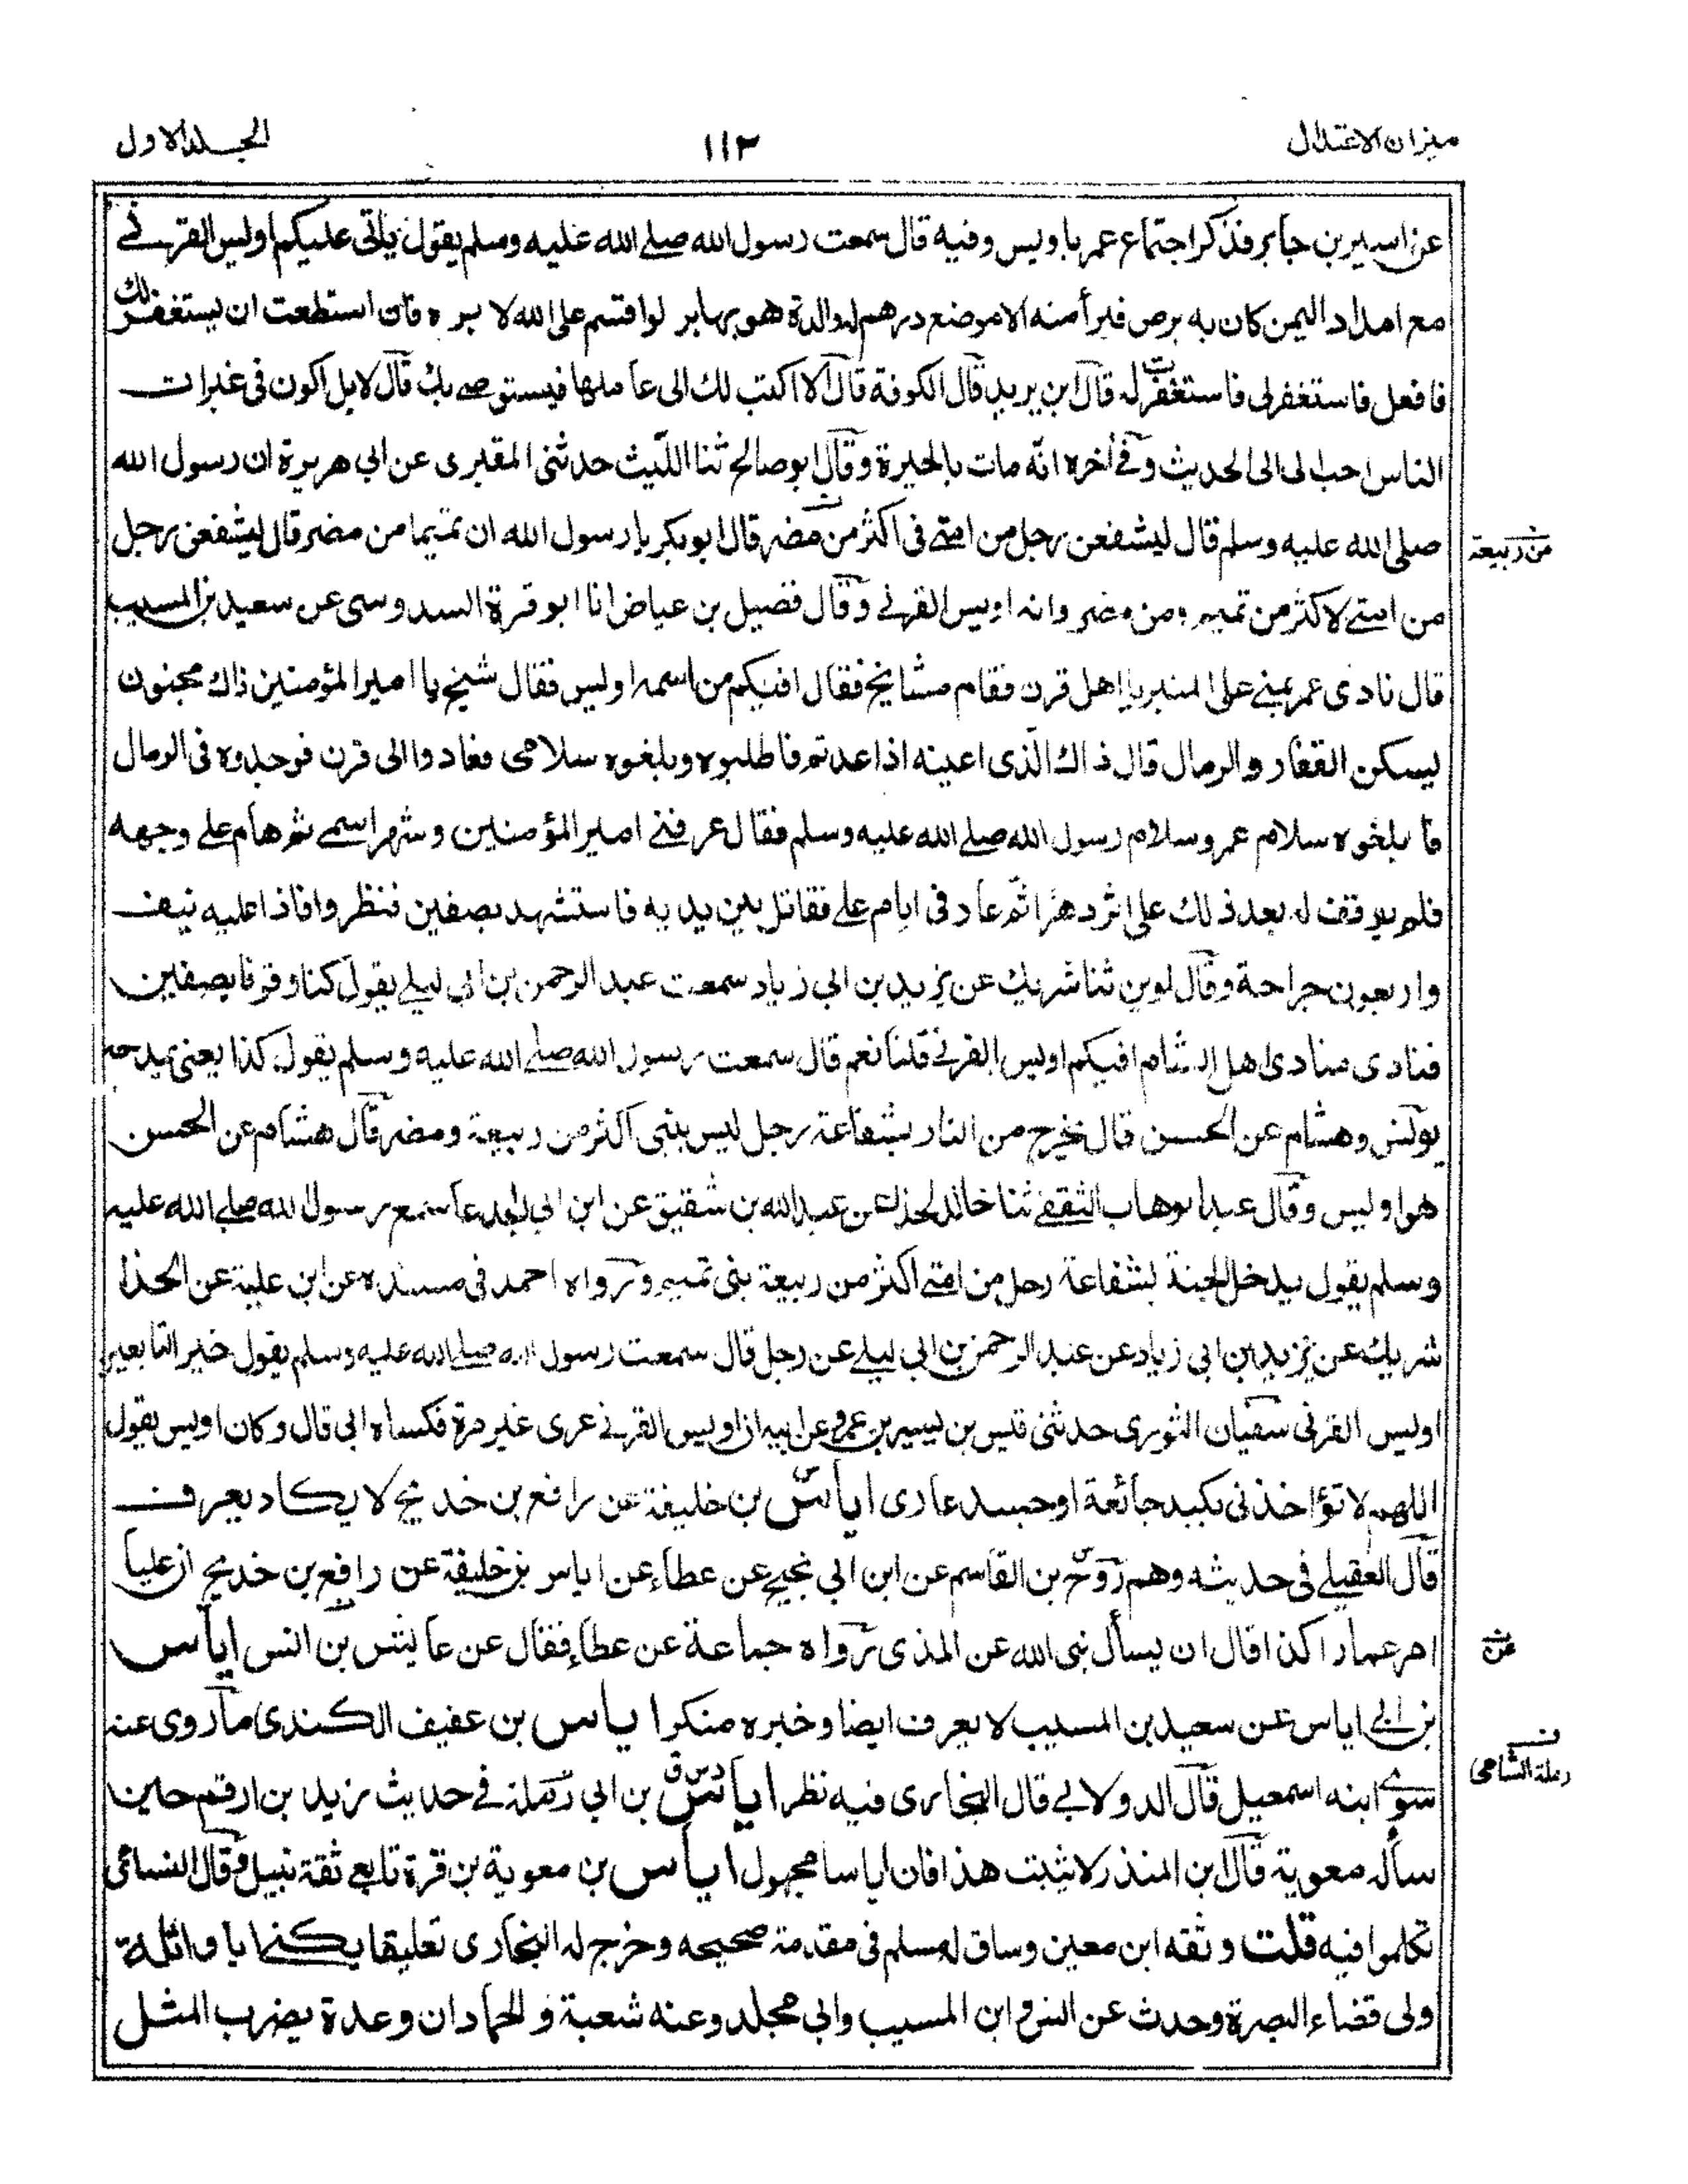 ميزان الاعتدال
١١٢
الجلد الاول
عن اسير بن جابر فذكر اجتماع عمر باويس وفيه قال سمعت رسول الله صلے الله عليه وسلم يقول ياتى عليكم اويس القرنے
مع امداد اليمن كان به برص فبرأ منه الا موضع درهم له والدة هو بها بر لو اقسم على الله لا بره فان استطعت ان يستغفر لك
فافعل فاستغفر لى فاستغفرت له قال اين يريد قال الكوفة قال الا اكتب لك الى عاملها فيستوصے بك قال لا بل اكون فى غبرات
الناس احب الى الحديث وفے أخره انه مات بالحيرة وقال ابو صالح ثنا الليث حدثنى المقبرى عن ابى هريرة ان رسول الله
صلى الله عليه وسلم قال ليشفعن رجل من امتے فى اكثر من مضر قال ابو بكر يا رسول الله ان تميما من مضر قال ليشفعن رجل
من ربيعة
من امتے لاكثر من تميم ومن مضر وانه اويس القرنے وقال فضيل بن عياض انا ابو قرة السدوسى عن سعيد بن المسيب
قال نادى عمر بمنے على المنبر يا اهل قرن فقام مشايخ فقال افيكم من اسمه اويس فقال شيخ يا امير المؤمنين ذاك مجنون
يسكن القفار والرمال قال ذاك الذى اعينه اذا عدتم فاطلبوه وبلغوه سلامى فعادوا الى قرن فوجدوه فى الرمال
فابلغوه سلام عمر وسلام رسول الله صلے الله عليه وسلم فقال عرفنے امير المؤمنين وشهر اسمے ثم هام على وجهه
فلم يوقف له بعد ذلك على اثر دهرا ثم عاد فى ايام علے فقاتل بين يديه فاستشهد بصفين فنظروا فاذا عليه نيف
واربعون جراحة وقال لوين ثنا شريك عن يزيد بن ابى زياد سمعت عبد الرحمن بن ابى ليلے يقول كنا وقوفا بصفين
فنادى منادى اهل الشام افيكم اويس القرنے قلنا نعم قال سمعت رسول الله صلے الله عليه وسلم يقول كذا يعنى يمدحه
يونس وهشام عن الحسن قال يخرج من النار بشفاعة رجل ليس بنبى اكثر من ربيعة ومضر قال هشام عن الحسن
هو اويس وقال عبد الوهاب الثقفے ثنا خالد الحذاء عن عبد الله بن شقيق عن ابن ابى الجدعا سمع رسول الله صلے الله عليه
وسلم يقول يدخل الجنة بشفاعة رجل من امتے اكثر من ربيعة بنى تميم ورواه احمد فى مسنده عن ابن علية عن الحذا
شريك عن يزيد بن ابى زياد عن عبد الرحمن بن ابى ليلے عن رجل قال سمعت رسول الله صلے الله عليه وسلم يقول خير التابعين
اويس القرنى سفيان الثورى حدثنى قيس بن يسير بن عمرو عن ابيه ان اويس القرنے عرى غير مرة فكساه ابى قال وكان اويس يقول
اللهم لا تؤاخذنى بكبد جائعة او جسد عارى اياس بن خليفة عن رافع بن خديج لا يكاد يعرف
قال العقيلے فى حديثه وهم روح بن القاسم عن ابن ابى نجيح عن عطاء عن اياس بن خليفة عن رافع بن خديج ان عليا
امر عمارا كذا قال ان يسأل نبى الله عن المذى رواه جماعة عن عطاء فقال عن عايش بن انس اياس
عن
بن ابى اياس عن سعيد بن المسيب لا يعرف ايضا وخبره منكر اياس بن عفيف الكندى ما روى عنه
سوے ابنه اسمعيل قال الدولابے قال البخارى فيه نظر اياس بن ابى رملة فے حديث زيد بن ارقم حين
رملة الشامى
سأله معوية قال ابن المنذر لا يثبت هذا فان اياسا مجهول اياس بن معوية بن قرة تابعے ثقة نبيل وقال النسائى
تكلموا فيه قلت وثقه ابن معين وساق له مسلم فى مقدمة صحيحه وخرج له البخارى تعليقا يكنى ابا واثلة
ولى قضاء البصرة وحدث عن انس وابن المسيب وابى مجلد وعنه شعبة والحمادان وعدة يضرب المثل